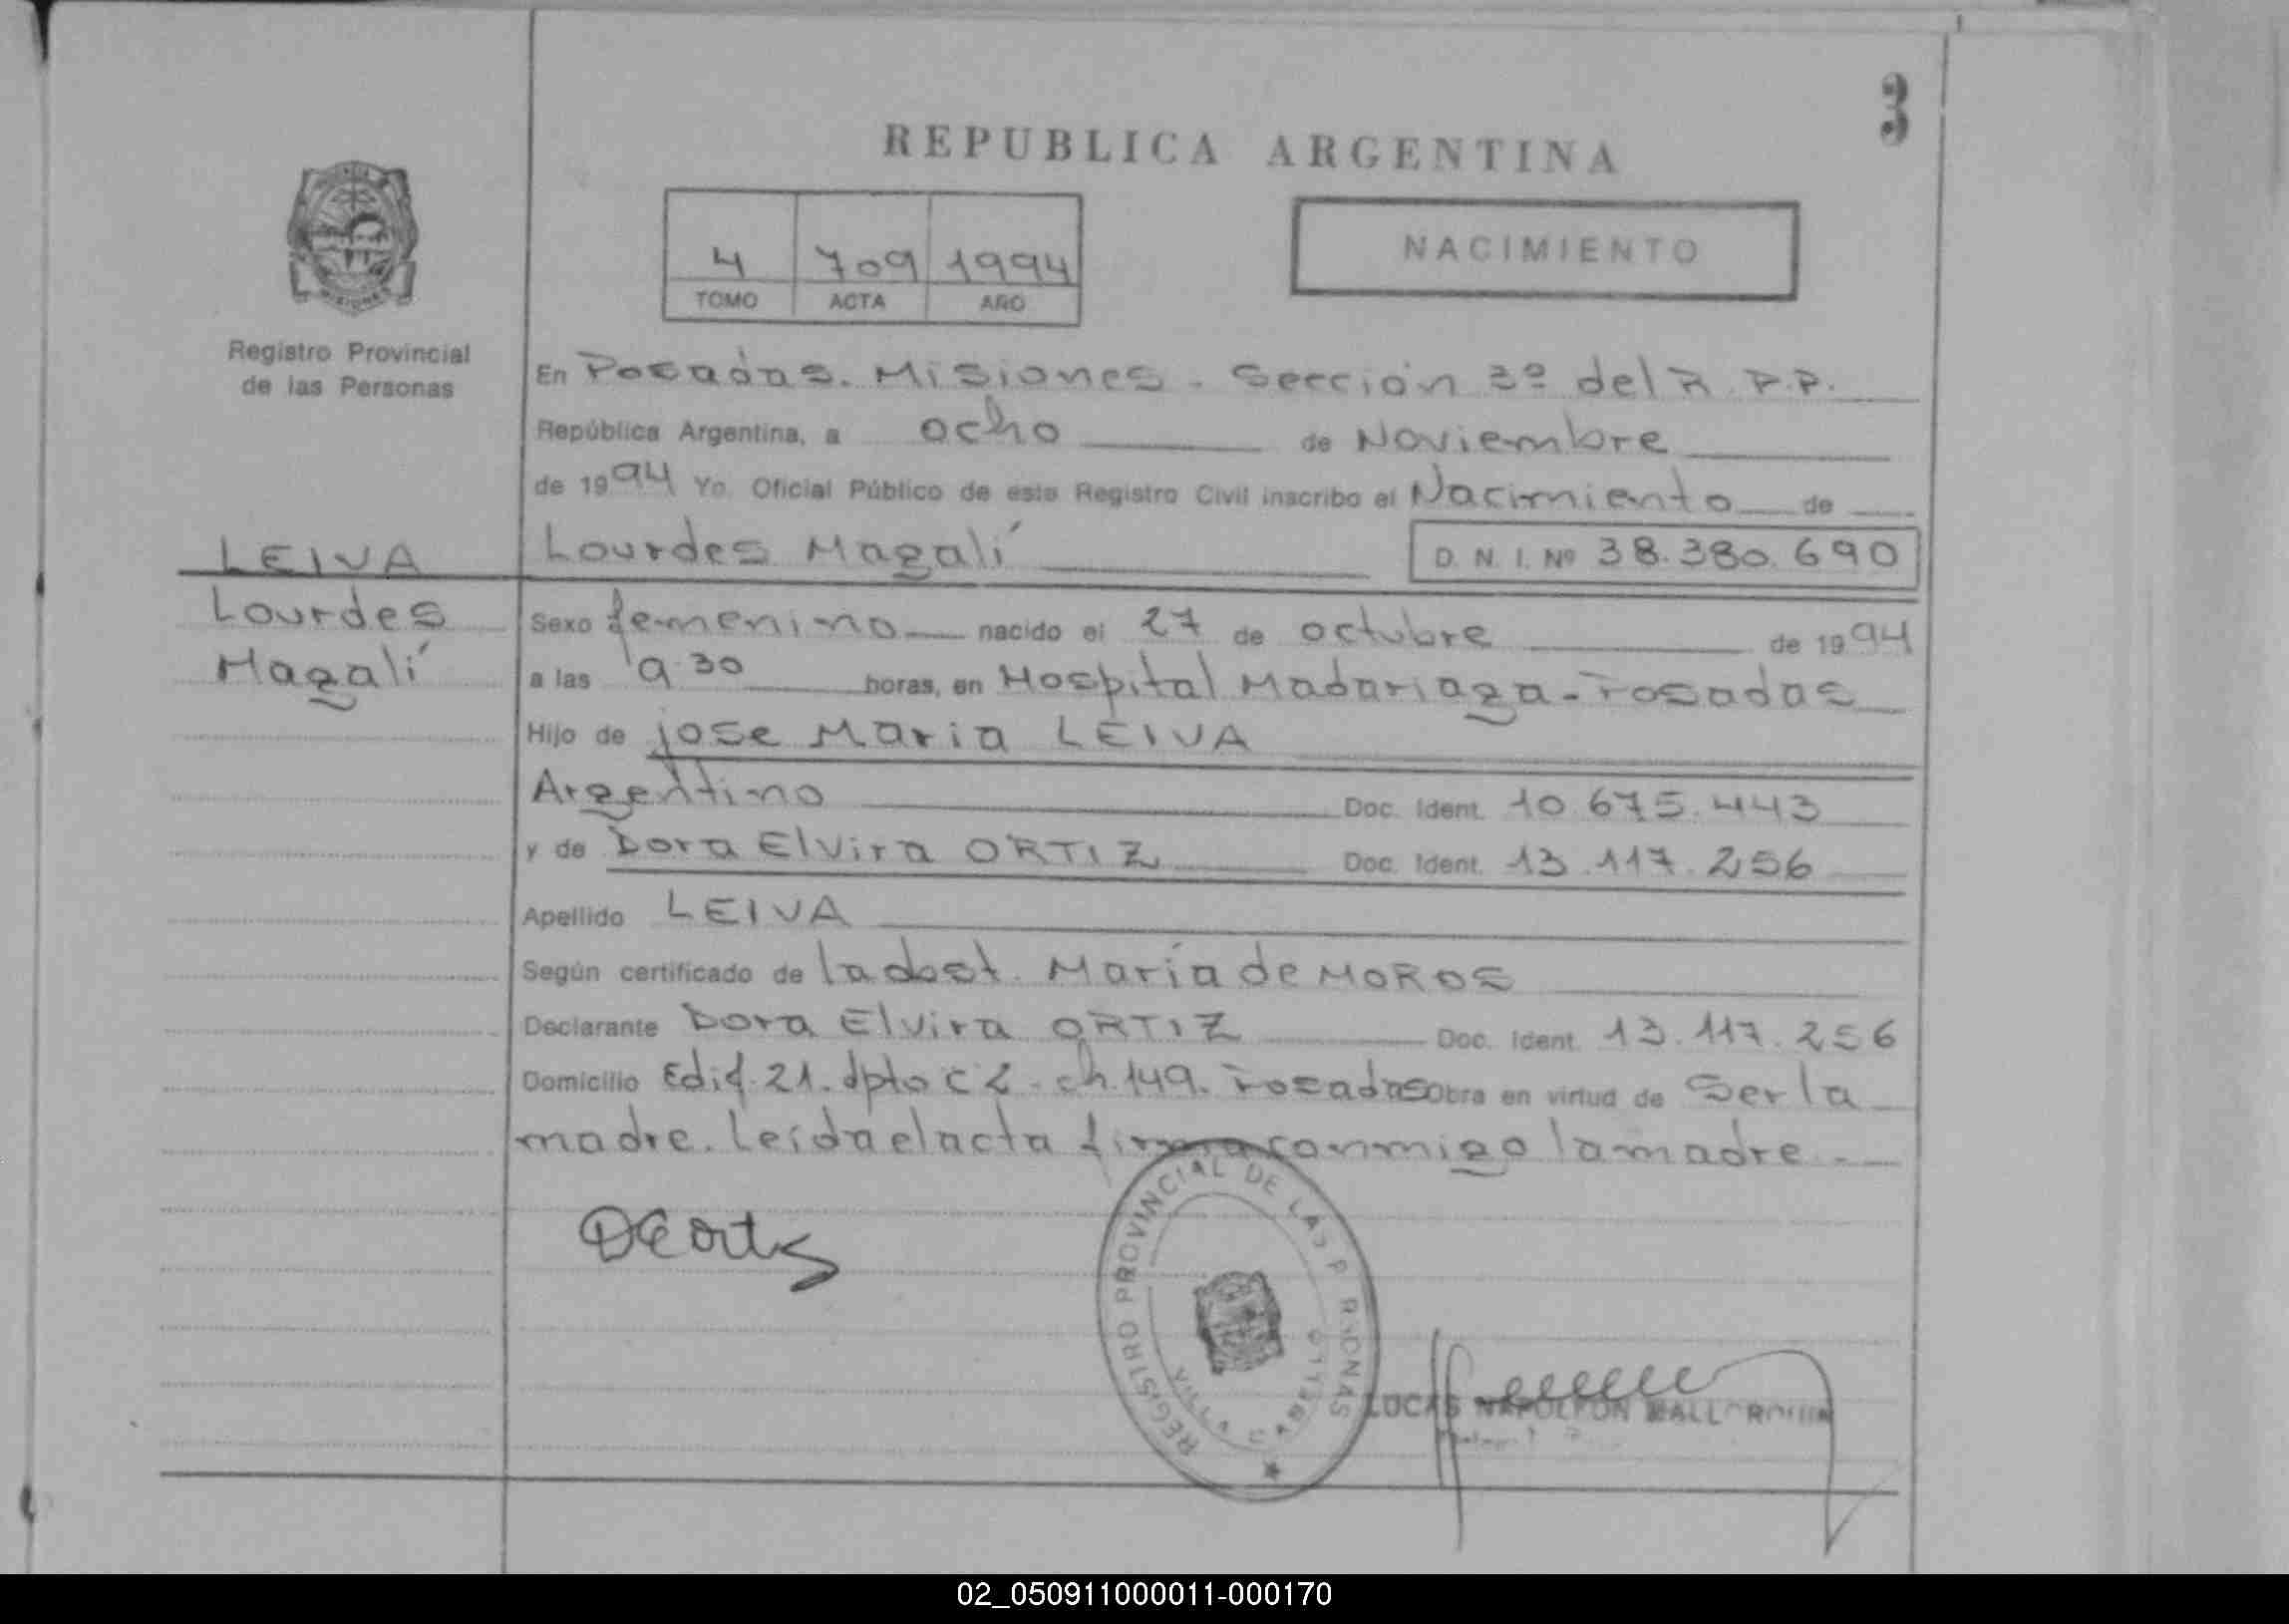 3
REPUBLICA ARGENTINA
4 709 1994
TOMO ACTA AÑO
NACIMIENTO
Registro Provincial
de las Personas
En Posadas. Misiones. Sección 3º del R.P.P.
República Argentina, a ocho de Noviembre
de 1994 Yo. Oficial Público de este Registro Civil inscribo el Nacimiento de
LEIVA
Lourdes
Magalí
Lourdes Magalí D. N. I. Nº 38.380.690
Sexo femenino nacido el 27 de octubre de 1994
a las 9.30 horas, en Hospital Madariaga - Posadas
Hijo de jose Maria LEIVA
Argentino Doc. Ident. 10.675.443
y de Dora Elvira ORTIZ Doc. Ident. 13.117.256
Apellido LEIVA
Según certificado de la obst. María de MOROS
Declarante Dora Elvira ORTIZ Doc. Ident. 13.117.256
Domicilio Edif. 21. dpto C 2 - ch. 149. Posadas Obra en virtud de Ser la
madre. Leída el acta firma conmigo la madre.
REGISTRO PROVINCIAL DE LAS P RSONAS
LUCAS NAPOLEON
02_050911000011-000170